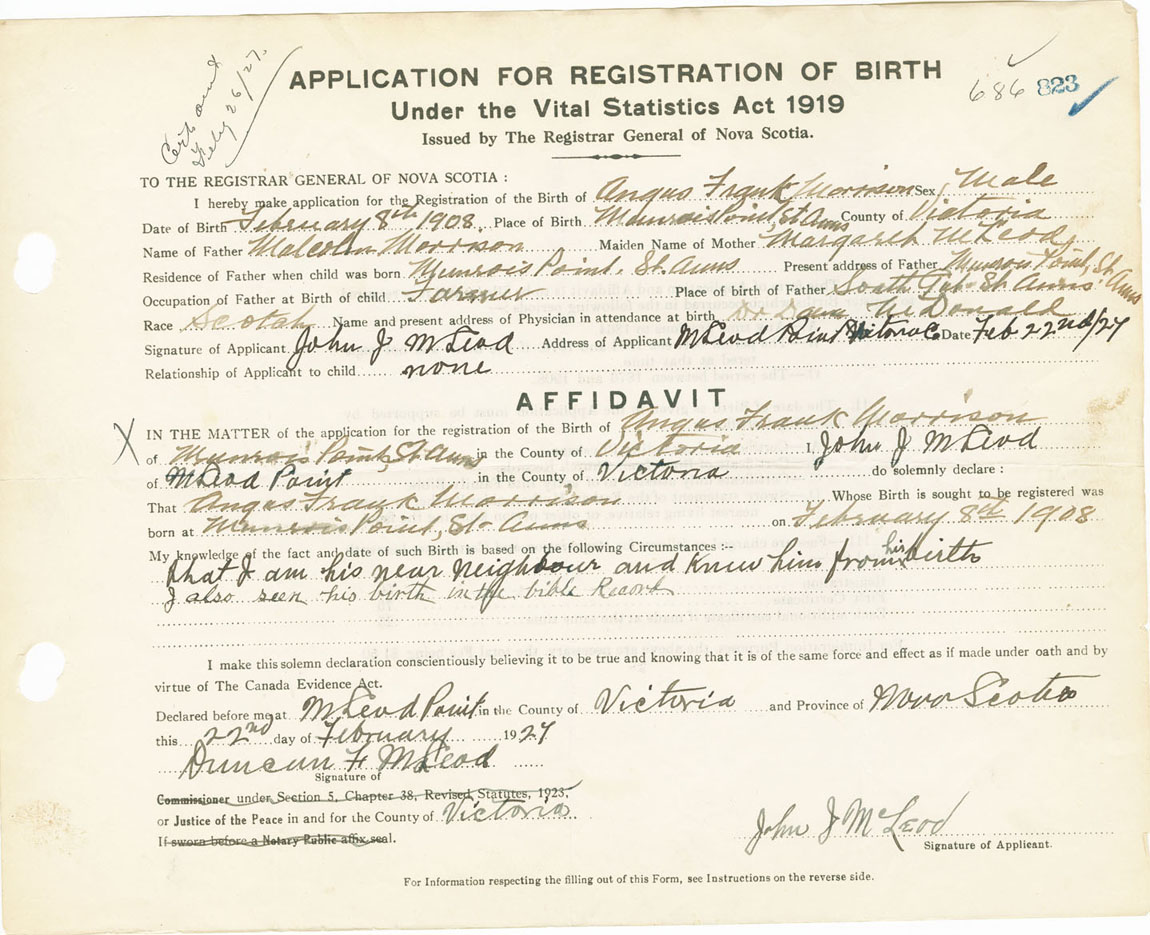 Cert and
Feby 26/27.
686 823
APPLICATION FOR REGISTRATION OF BIRTH
Under the Vital Statistics Act 1919
Issued by The Registrar General of Nova Scotia.
TO THE REGISTRAR GENERAL OF NOVA SCOTIA :
I hereby make application for the Registration of the Birth of Angus Frank Morrison Sex, Male
Date of Birth February 8th 1908. Place of Birth Munrois Point, St Anns County of Victoria
Name of Father Malcolm Morrison Maiden Name of Mother Margaret McLeod
Residence of Father when child was born Munrois Point, St. Anns Present address of Father Munrois Point, St. Anns
Occupation of Father at Birth of child Farmer Place of birth of Father South Gut St. Anns
Race Scotch Name and present address of Physician in attendance at birth Dr Dan McDonald
Signature of Applicant John J McLeod Address of Applicant McLeod Point Victoria C Date Feb 22nd/27
Relationship of Applicant to child none
AFFIDAVIT
X IN THE MATTER of the application for the registration of the Birth of Angus Frank Morrison
of Munrois Point, St Anns in the County of Victoria I, John J McLeod
of McLeod Point in the County of Victoria do solemnly declare :
That Angus Frank Morrison Whose Birth is sought to be registered was
born at Munrois Point, St. Anns on February 8th 1908
My knowledge of the fact and date of such Birth is based on the following Circumstances :--
that I am his near neighbour and knew him from his birth
I also seen his birth in the bible Record
I make this solemn declaration conscientiously believing it to be true and knowing that it is of the same force and effect as if made under oath and by
virtue of The Canada Evidence Act.
Declared before me at McLeod Point in the County of Victoria and Province of Nova Scotia
this 22nd day of February 1927
Duncan F McLeod
Signature of
Commissioner under Section 5, Chapter 38, Revised Statutes, 1923,
or Justice of the Peace in and for the County of Victoria
If sworn before a Notary Public affix seal.
John J McLeod
Signature of Applicant.
For Information respecting the filling out of this Form, see Instructions on the reverse side.